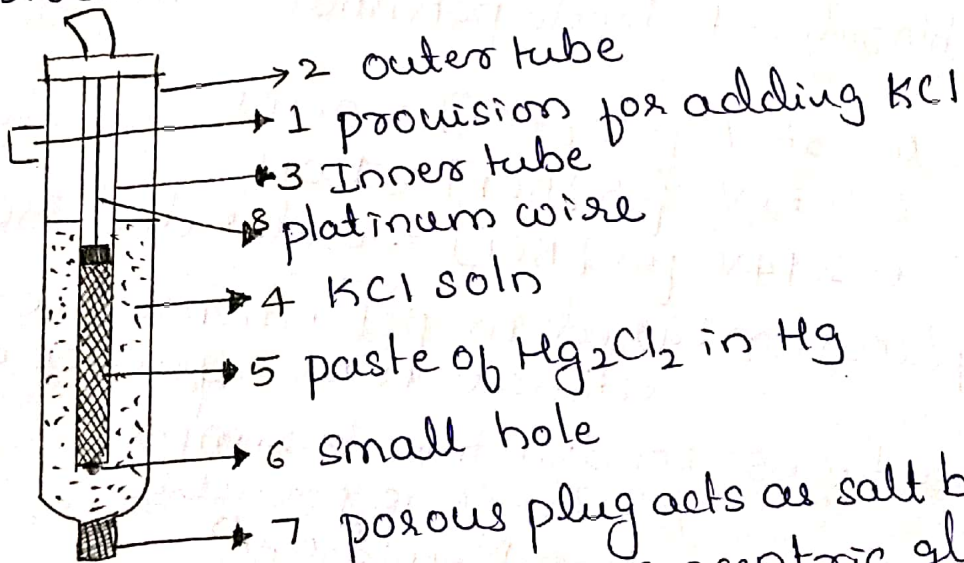 2 outer tube
1 provision for adding KCl
3 Inner tube
8 platinum wire
4 KCl soln
5 paste of Hg2Cl2 in Hg
6 small hole
7 porous plug acts as salt